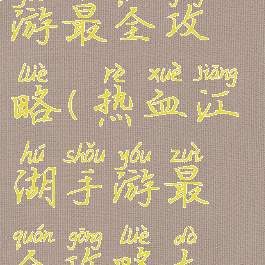 游最全攻
lüè rè xuè jiāng
略(热血江
hú shǒu yóu zuì
湖手游最
quán gōng lüè dà
全攻略大